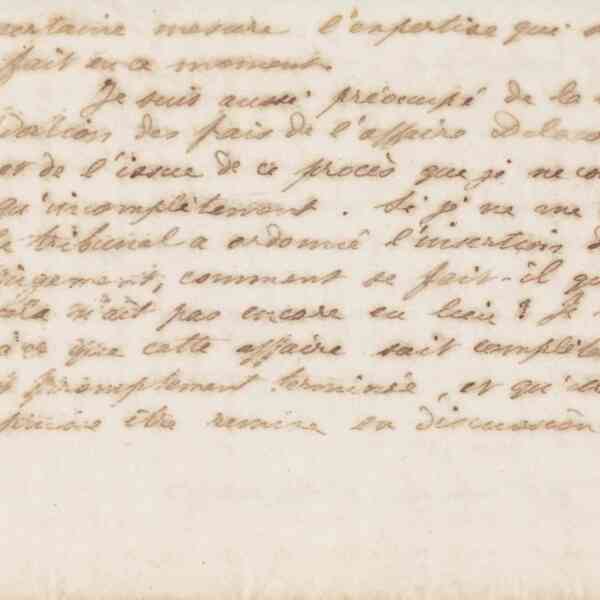 certaine mesure l'expertise qui s
fait en ce moment.
Je suis aussi préocupé de la
idation des frais de l'affaire Delac
et de l'issue de ce procès que je ne co
qu'incomplètement. Si je ne me
le tribunal a ordonné l'insertion d
jugement, comment se fait-il qu
cela n'ait pas encore eu lieu ? Je
à ce que cette affaire soit complète
promptement terminée, et qu'elle
puisse être remise en discussion